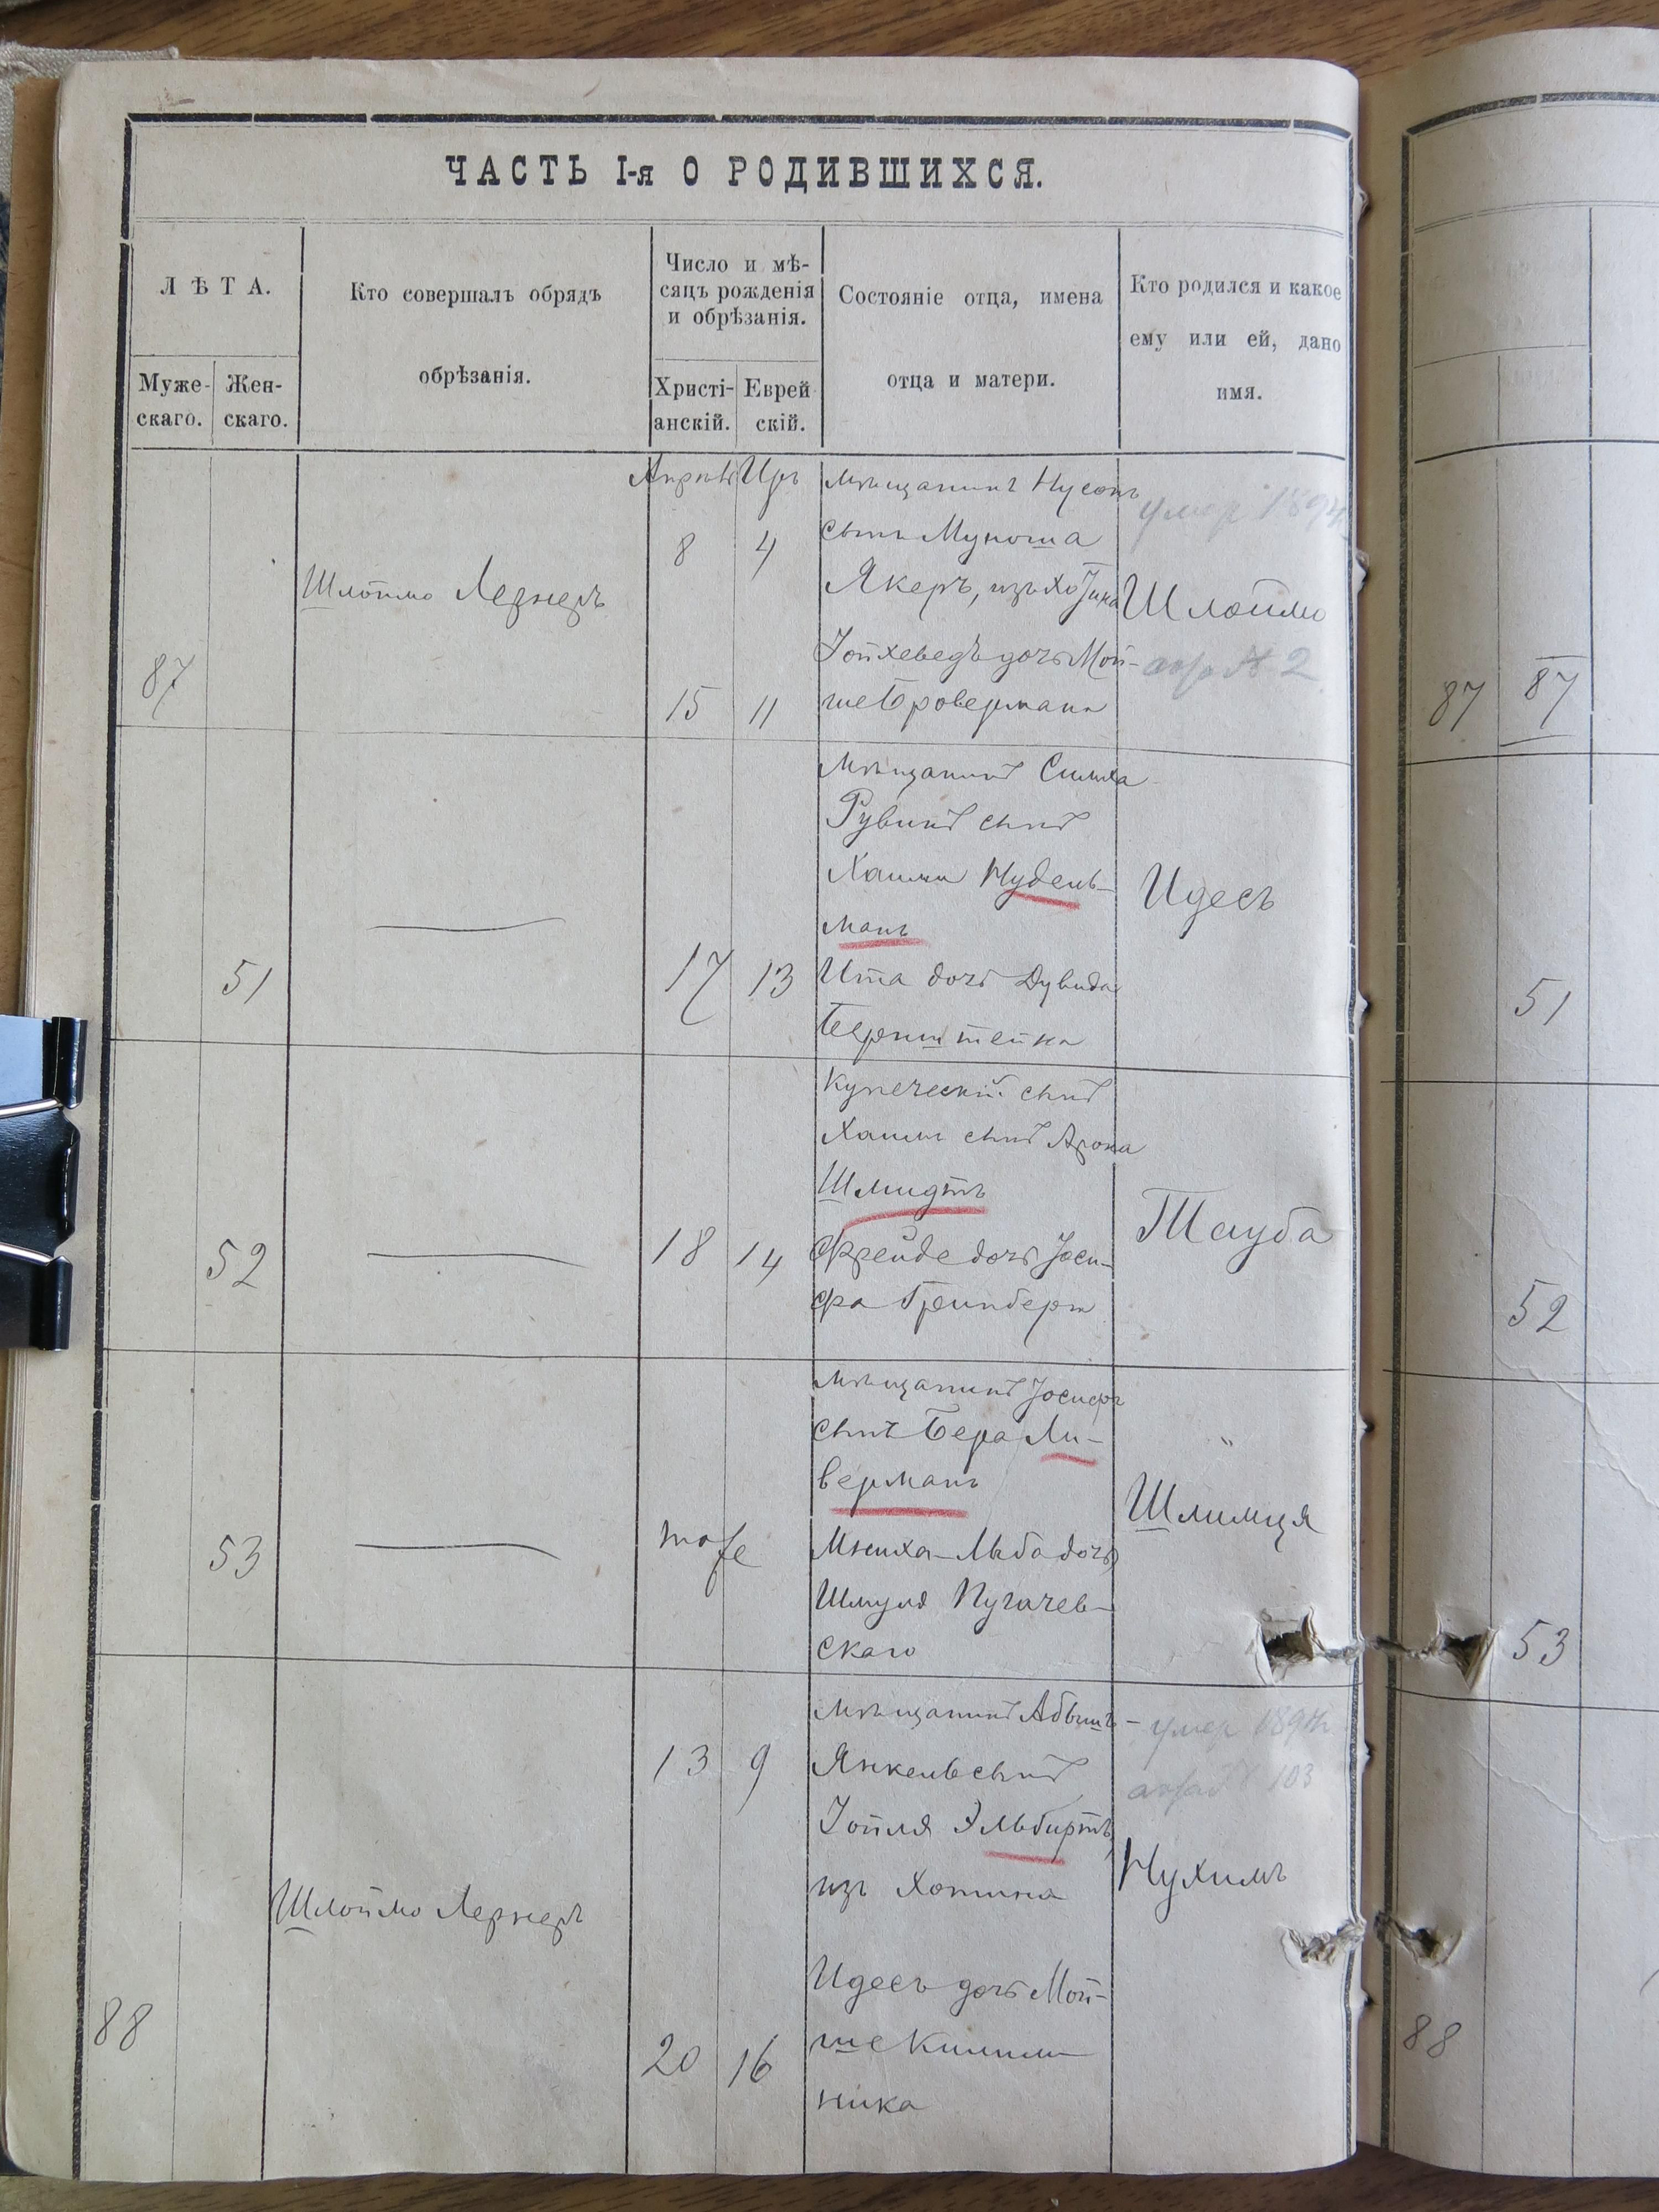 ЧАСТЬ I-я О РОДИВШИХСЯ.
ЛѢТА.
Муже-
скаго.
Жен-
скаго.
Кто совершалъ обрядъ
обрѣзанія.
Число и мѣ-
сяцъ рожденія
и обрѣзанія.
Христі-
анскій.
Еврей
скій.
Состояніе отца, имена
отца и матери.
Кто родился и какое
ему или ей, дано
имя.
87
Шлоймо Лернеръ
Апрѣль Иръ
8 4
15 11
мѣщанинъ Нусонъ
сынъ Муноша
Якеръ, изъ
Іойхеведъ дочь Мой-
ше Бровермана
умер 1894
Шлоймо
№ 2
87 87
51
17 13
мѣщанинъ Симха
Рувинъ сынъ
Хаима Нудель-
манъ
Ита дочь Дувида
Бернштейна
Идесъ
51
52
18 14
купеческій сынъ
Хаимъ сынъ Арона
Шмидтъ
Фрейде дочь Іоси-
фа Гринберг
Тауба
52
53
тоже
мѣщанинъ Іосифъ
сынъ Бера Ли-
верманъ
Мниха-Люба дочь
Шмуля Пугачев-
скаго
"
Шлимця
53
88
Шлоймо Лернеръ
13 9
20 16
мѣщанинъ Абышъ-
Янкель сынъ
Іойля Эльбиртъ,
изъ Хотина
Идесъ дочь Мой-
ше Килим-
ника
умер 1894
103
Нухимъ
88